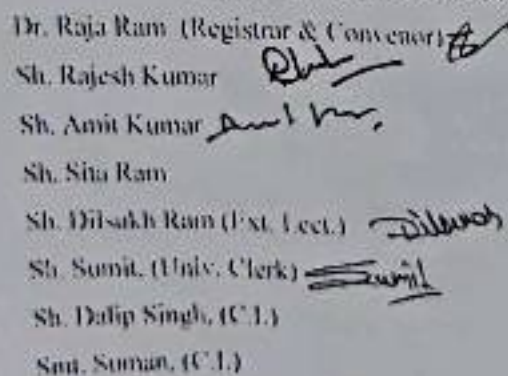 Dr. Raja Ram (Registrar & Convenor)
Sh. Rajesh Kumar
Sh. Amit Kumar
Sh. Sita Ram
Sh. Dilsukh Ram (Ext. Lect.)
Sh. Sumit, (Univ. Clerk) Sumit
Sh. Dalip Singh, (C.I.)
Smt. Suman, (C.I.)